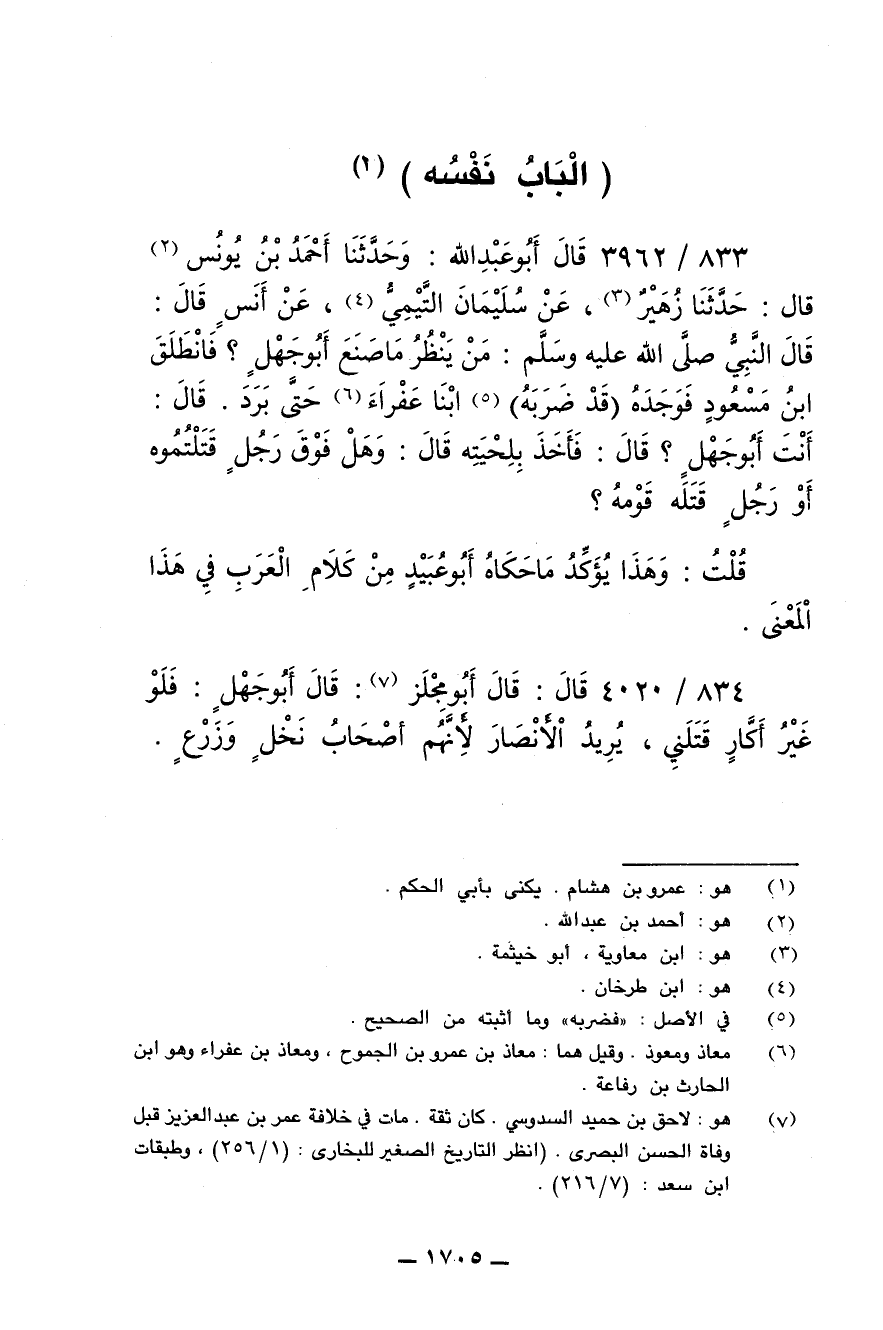 ( الْبَابُ نَفْسُه ) (٢)
٨٣٣ / ٣٩٦٢ قَالَ أَبُوعَبْدِالله : وَحَدَّثَنَا أَحْمَدُ بْنُ يُونُس (٢)
قال : حَدَّثَنَا زُهَيْرٌ (٣) ، عَنْ سُلَيْمَانَ التَّيْمِيُّ (٤) ، عَنْ أَنَسٍ قَالَ :
قَالَ النَّبِيُّ صلَّى الله عليه وسَلَّم : مَنْ يَنْظُرُ مَاصَنَعَ أَبُوجَهْلٍ ؟ فَانْطَلَقَ
ابنُ مَسْعُودٍ فَوَجَدَهُ (قَدْ ضَرَبَهُ) (٥) ابْنَا عَفْرَاءَ (٦) حَتَّى بَرَدَ . قَالَ :
أَنْتَ أَبُوجَهْلٍ ؟ قَالَ : فَأَخَذَ بِلِحْيَتِه قَالَ : وَهَلْ فَوْقَ رَجُلٍ قَتَلْتُمُوه
أَوْ رَجُلٍ قَتَلَه قَوْمهُ ؟
قُلْتُ : وَهَذَا يُؤَكِّدُ مَاحَكَاهُ أَبُوعُبَيْدٍ مِنْ كَلَامِ الْعَرَبِ فِي هَذَا
الْمَعْنَى .
٨٣٤ / ٤٠٢٠ قَالَ : قَالَ أَبُومِجْلَز (٧) : قَالَ أَبُوجَهْلٍ : فَلَوْ
غَيْرُ أَكَّارٍ قَتَلَنِي ، يُرِيدُ الْأَنْصَارَ لِأَنَّهُم أصْحَابُ نَخْلٍ وَزَرْعٍ .
(١) هو : عمرو بن هشام . يكنى بأبي الحكم .
(٢) هو : أحمد بن عبدالله .
(٣) هو : ابن معاوية ، أبو خيثمة .
(٤) هو : ابن طرخان .
(٥) في الأصل : «فضربه» وما أثبته من الصحيح .
(٦) معاذ ومعوذ . وقيل هما : معاذ بن عمرو بن الجموح ، ومعاذ بن عفراء وهو ابن
الحارث بن رفاعة .
(٧) هو : لاحق بن حميد السدوسي . كان ثقة . مات في خلافة عمر بن عبدالعزيز قبل
وفاة الحسن البصرى . (انظر التاريخ الصغير للبخارى : (٢٥٦/١) ، وطبقات
ابن سعد : (٢١٦/٧) .
ــ ١٧٠٥ ــ